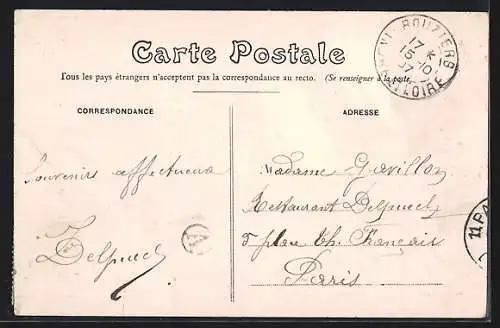 Carte Postale
Tous les pays étrangers n'acceptent pas la correspondance au recto. (Se renseigner à la poste
CORRESPONDANCE
ADRESSE
ROUZIERS
17 *
15 -10
07
LOIRE
Souvenirs affectueux
Delpuech
Madame Gavillon
Restaurant Delpuech
5 place Th. Français
Paris